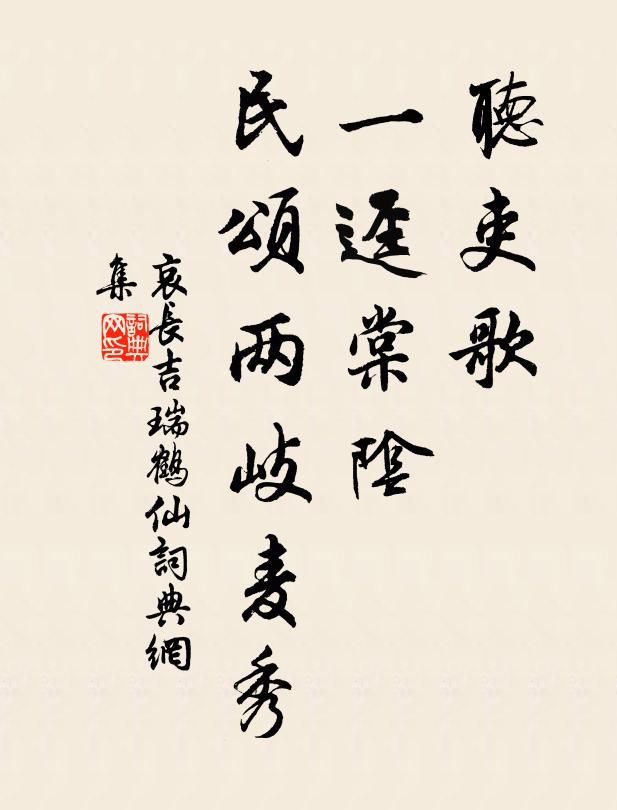 聽吏歌
一逕棠陰
民頌两岐麦秀
哀長吉瑞鶴仙詞典網
集
詞典
网印